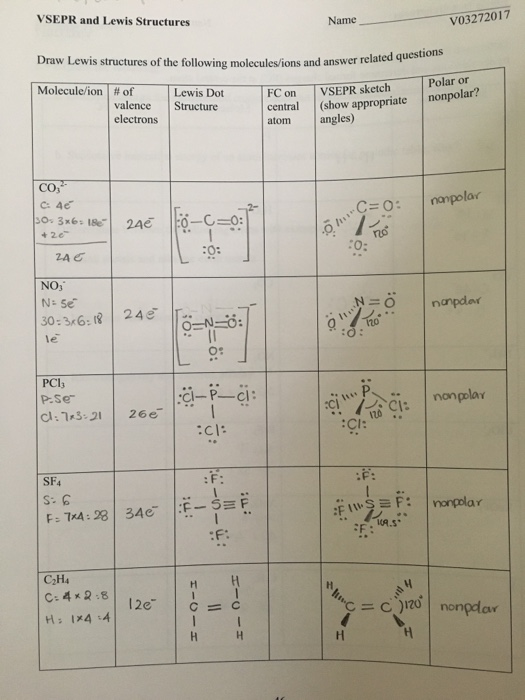 VSEPR and Lewis Structures Name V03272017
Draw Lewis structures of the following molecules/ions and answer related questions
Molecule/ion # of valence electrons Lewis Dot Structure FC on central atom VSEPR sketch (show appropriate angles) Polar or nonpolar?
CO₃²⁻
C: 4e⁻
3O: 3x6: 18e⁻
+ 2e⁻
24e
24e⁻
[:Ö-C=O:]²⁻
:O:
C=O:
:O: 120°
:O:
nonpolar
NO₃⁻
N: 5e⁻
3O: 3x6: 18
1e⁻
24e⁻
[Ö=N=Ö:]⁻
O:
N=Ö
O 120
:O:
nonpolar
PCl₃
P: 5e⁻
Cl: 7x3: 21
26e⁻
:Cl-P-Cl:
:Cl:
P
:Cl 120 Cl:
:Cl:
nonpolar
SF₄
S: 6
F: 7x4: 28
34e⁻
:F:
:F-S≡F:
:F:
:F:
:F S≡F:
:F: 109.5°
nonpolar
C₂H₄
C: 4x2: 8
H: 1x4: 4
12e⁻
H H
C = C
H H
H H
C = C )120°
H H
nonpolar